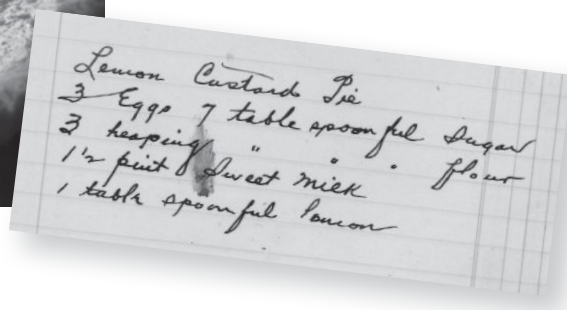 Lemon Custard Pie
3 Eggs 7 table spoonful Sugar
3 heaping " " " flour
1 1/2 pint Sweet Milk
1 table spoonful lemon